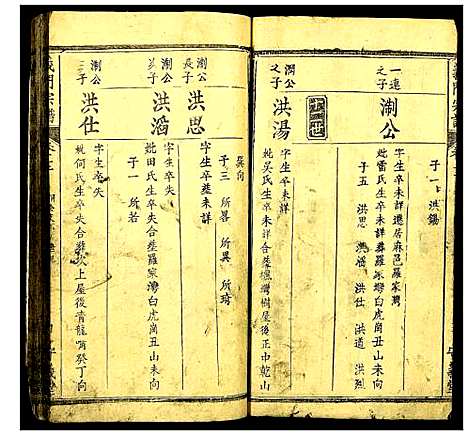 子一 洪錫
一連
之子
淛公
字生卒未詳遷居麻邑羅家灣
妣雷氏生卒未詳葬羅家灣白虎崗丑山未向
子五 洪思 洪滔 洪仕 洪道 洪烈
十三世
淛公
之子
洪湯
字生卒未詳
妣吳氏生卒未詳合葬
灣樹屋後正中乾山
巽向
子三 所畧 所異 所琦
淛公
長子
洪思
字生卒葬未詳
淛公
洪滔
字生卒失
妣田氏生卒失合葬羅家灣白虎崗丑山未向
子一 所若
淛公
三子
洪仕
字生卒失
妣何氏生卒失合葬
上屋後青龍嘴癸丁向
義門宗譜